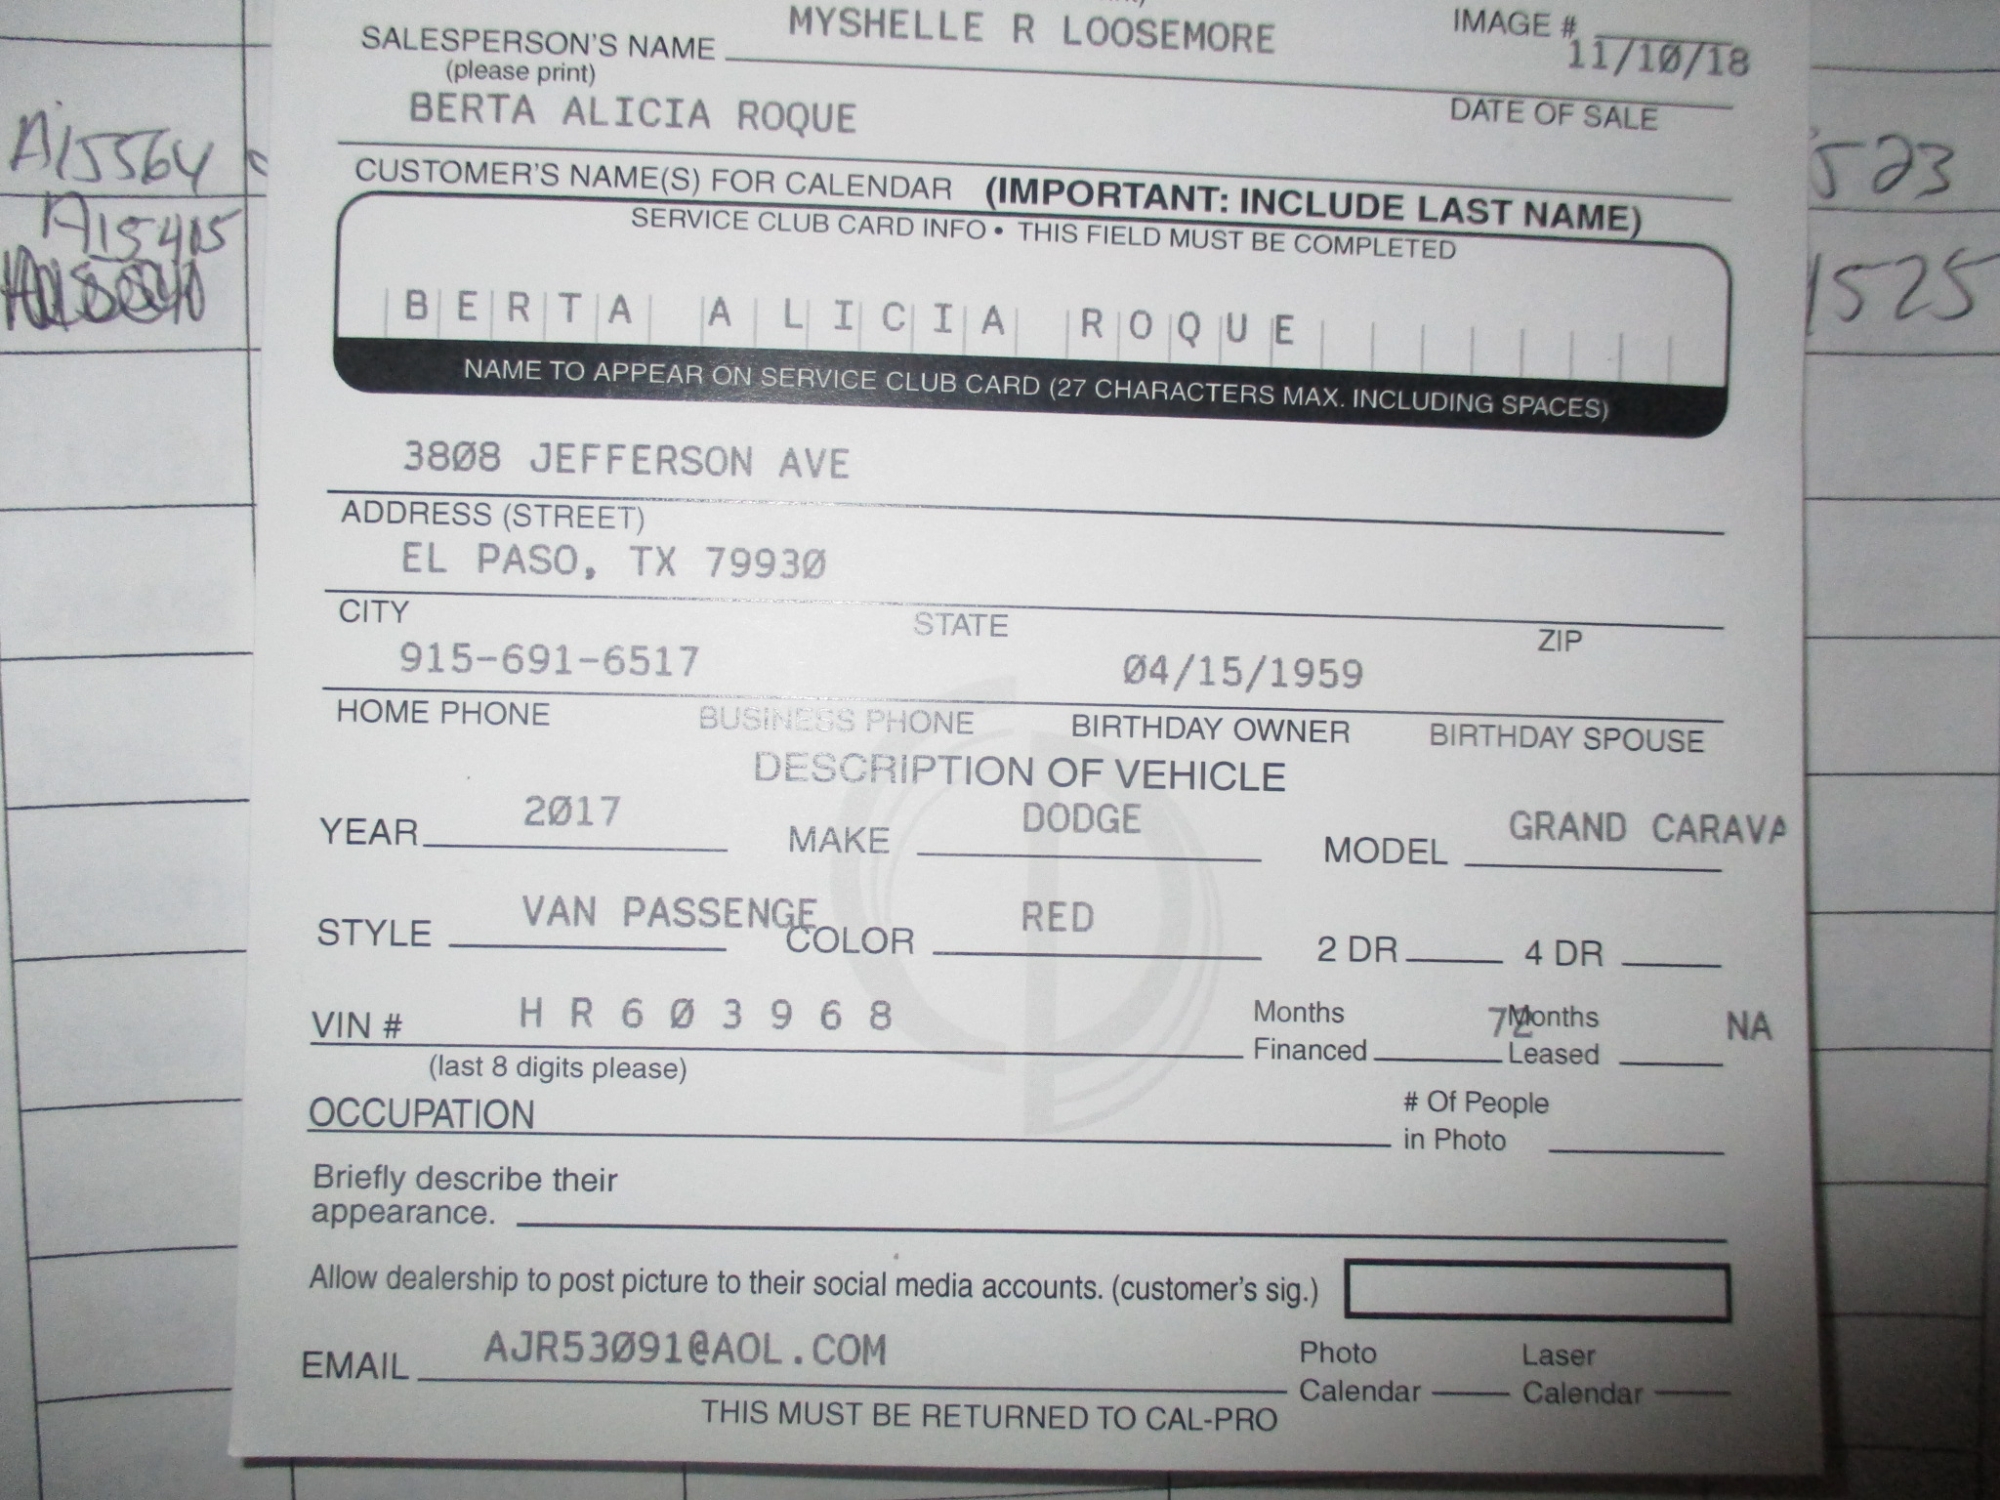 MYSHELLE R LOOSEMORE
SALESPERSON'S NAME
IMAGE #
(please print)
11/10/18
BERTA ALICIA ROQUE
DATE OF SALE
CUSTOMER'S NAME(S) FOR CALENDAR (IMPORTANT: INCLUDE LAST NAME)
SERVICE CLUB CARD INFO • THIS FIELD MUST BE COMPLETED
BERTA ALICIA ROQUE
NAME TO APPEAR ON SERVICE CLUB CARD (27 CHARACTERS MAX. INCLUDING SPACES)
3808 JEFFERSON AVE
ADDRESS (STREET)
EL PASO, TX 79930
CITY STATE ZIP
915-691-6517 04/15/1959
HOME PHONE BUSINESS PHONE BIRTHDAY OWNER BIRTHDAY SPOUSE
DESCRIPTION OF VEHICLE
YEAR 2017 MAKE DODGE MODEL GRAND CARAVA
STYLE VAN PASSENGE COLOR RED 2 DR 4 DR
VIN # HR603968 Months Financed 72 Months Leased NA
(last 8 digits please)
OCCUPATION # Of People
in Photo
Briefly describe their
appearance.
Allow dealership to post picture to their social media accounts. (customer's sig.)
EMAIL AJR53091@AOL.COM Photo Calendar Laser Calendar
THIS MUST BE RETURNED TO CAL-PRO
A15564
A15415
523
1525